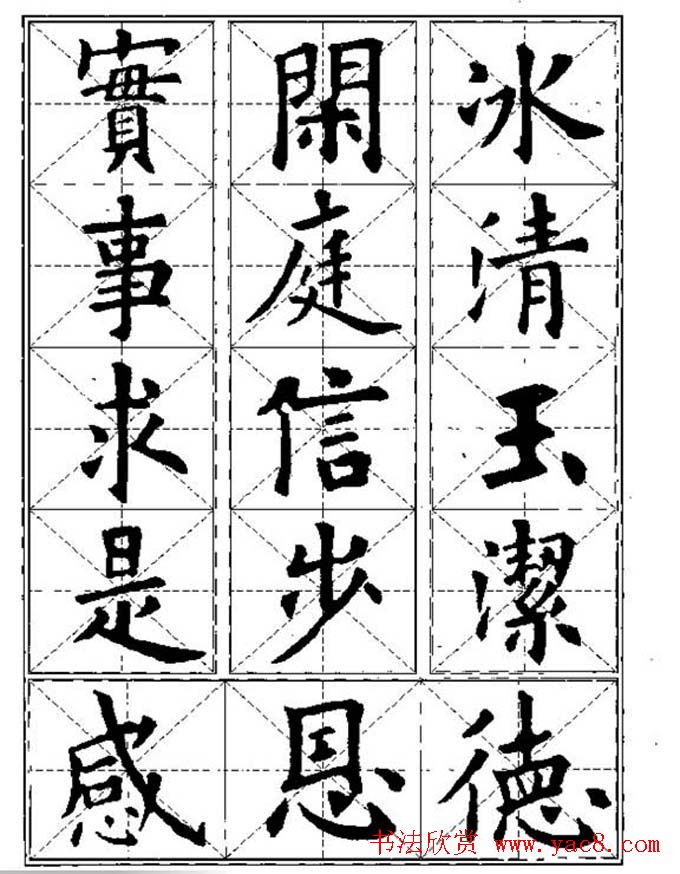 冰清玉潔
閑庭信步
實事求是
感恩德
书法欣赏 www.yac8.com